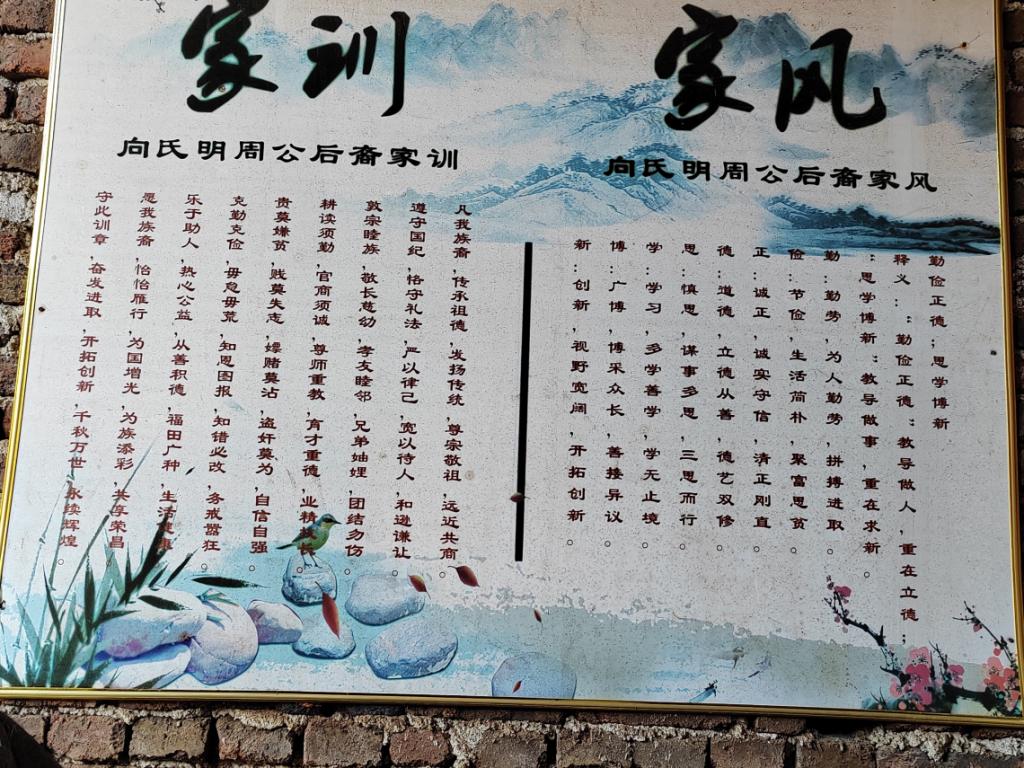 家训
向氏明周公后裔家训
凡我族裔,传承祖德,发扬传统,尊宗敬祖,远近共商。
遵守国纪,恪守礼法,严以律己,宽以待人,和逊谦让。
敦宗睦族,敬长慈幼,孝友睦邻,兄弟妯娌,团结勿伤。
耕读须勤,官商须诚,尊师重教,育才重德,业精长。
贵莫嫌贫,贱莫失志,嫖赌莫沾,盗奸莫为,自信自强。
克勤克俭,毋怠毋荒,知恩图报,知错必改,务戒嚣狂。
乐于助人,热心公益,从善积德,福田广种,生活。
愿我族裔,怡怡雁行,为国增光,为族添彩,共享荣昌。
守此训章,奋发进取,开拓创新,千秋万世,永续辉煌。
家风
向氏明周公后裔家风
勤俭正德;思学博新
释义:“勤俭正德”教导做人,重在立德;
“思学博新”教导做事,重在求新。
勤:勤劳,为人勤劳,拼搏进取。
俭:节俭,生活简朴,聚富思贫。
正:诚正,诚实守信,清正刚直。
德:道德,立德从善,德艺双修。
思:慎思,谋事多思,三思而行。
学:学习,多学善学,学无止境。
博:广博,博采众长,善接异议。
新:创新,视野宽阔,开拓创新。